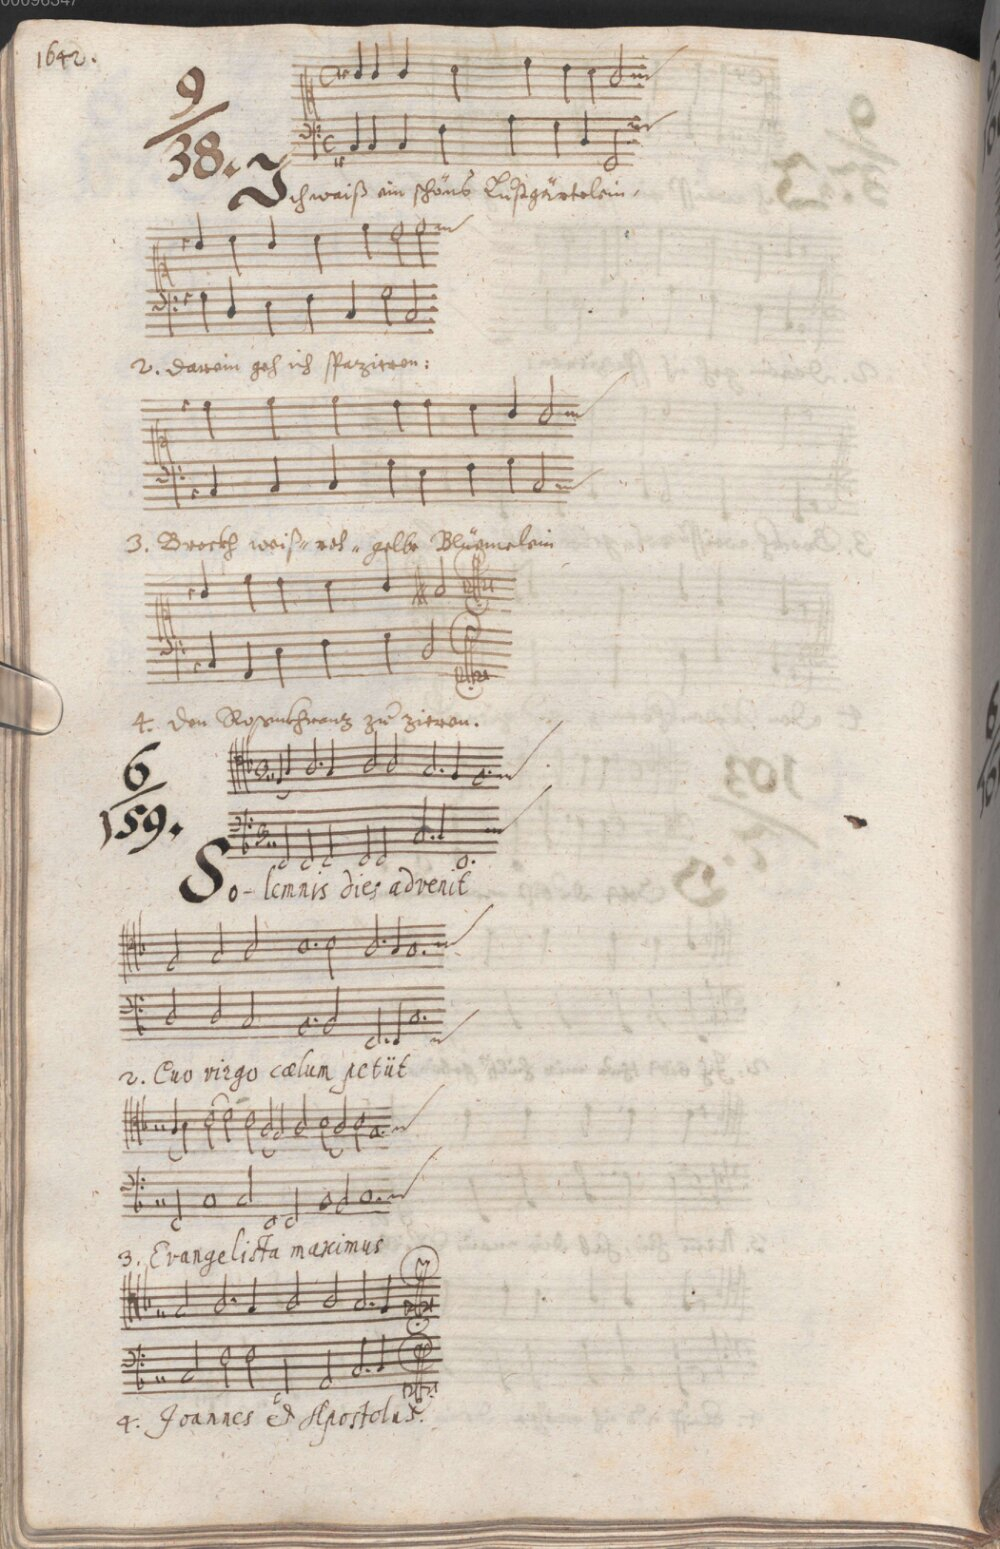 1642.
9
38.
Ich waiß ein schöns Lustgärtelein,
2. darein geh ich spazieren:
3. Brockh weiß, rot, gelbe Blüemelein
4. den Rosenkhranz zu zieren.
6
159.
So-lemnis dies advenit
2. Quo virgo cælum petiit
3. Evangelista maximus
4. Joannes et Apostolus.